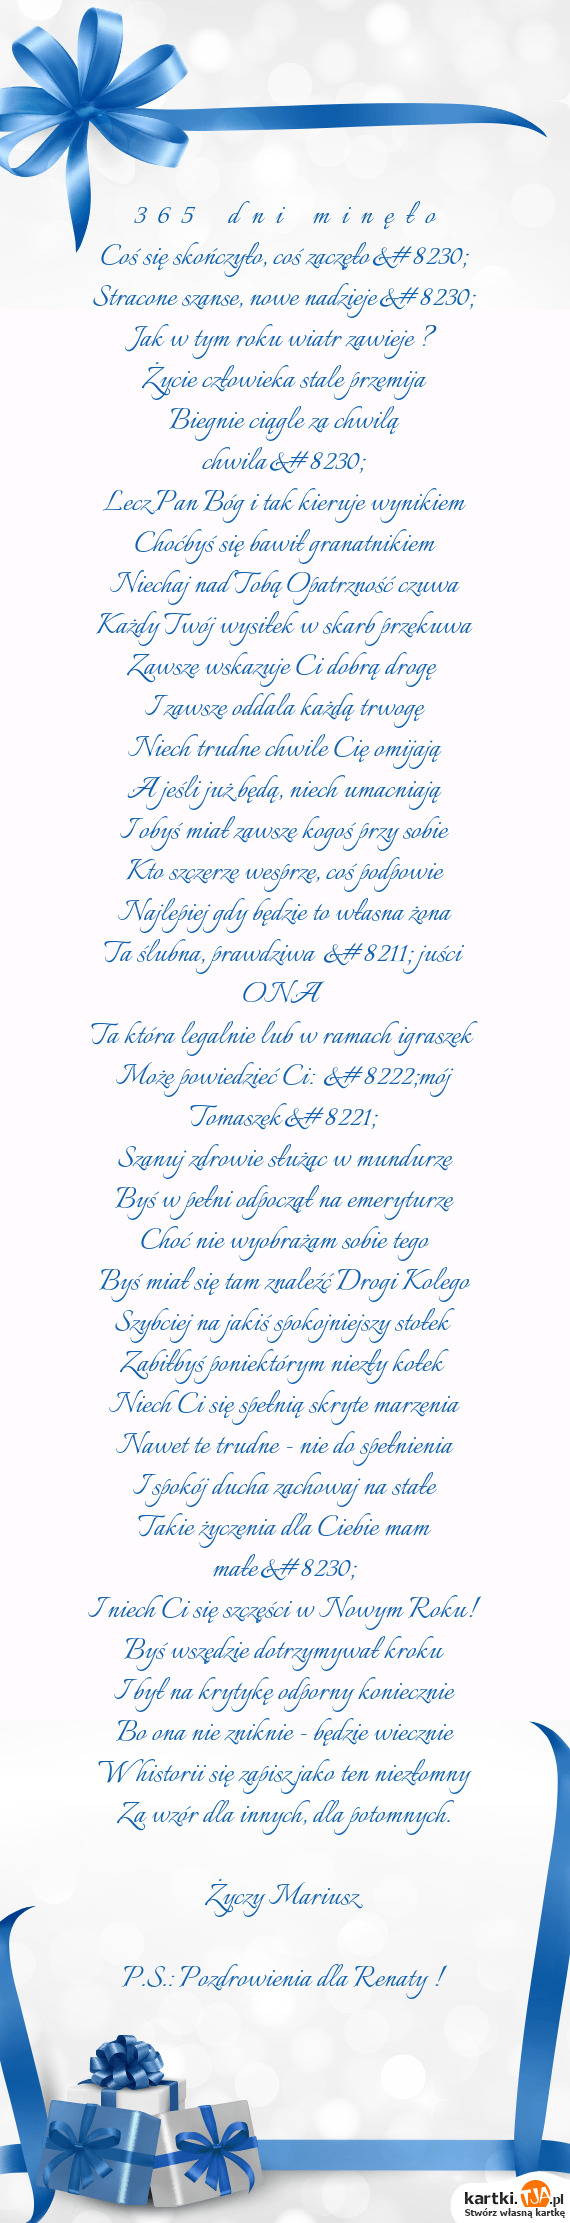 365 dni minęło
Coś się skończyło, coś zaczęło &#8230;
Stracone szanse, nowe nadzieje &#8230;
Jak w tym roku wiatr zawieje ?
Życie człowieka stale przemija
Biegnie ciągle za chwilą
chwila &#8230;
Lecz Pan Bóg i tak kieruje wynikiem
Choćbyś się bawił granatnikiem
Niechaj nad Tobą Opatrzność czuwa
Każdy Twój wysiłek w skarb przekuwa
Zawsze wskazuje Ci dobrą drogę
I zawsze oddala każdą trwogę
Niech trudne chwile Cię omijają
A jeśli już będą, niech umacniają
I obyś miał zawsze kogoś przy sobie
Kto szczerze wesprze, coś podpowie
Najlepiej gdy będzie to własna żona
Ta ślubna, prawdziwa &#8211; juści
ONA
Ta która legalnie lub w ramach igraszek
Może powiedzieć Ci: &#8222;mój
Tomaszek &#8221;
Szanuj zdrowie służąc w mundurze
Byś w pełni odpoczął na emeryturze
Choć nie wyobrażam sobie tego
Byś miał się tam znaleźć Drogi Kolego
Szybciej na jakiś spokojniejszy stołek
Zabiłbyś poniektórym niezły kołek
Niech Ci się spełnią skryte marzenia
Nawet te trudne - nie do spełnienia
I spokój ducha zachowaj na stałe
Takie życzenia dla Ciebie mam
małe &#8230;
I niech Ci się szczęści w Nowym Roku!
Byś wszędzie dotrzymywał kroku
I był na krytykę odporny koniecznie
Bo ona nie zniknie - będzie wiecznie
W historii się zapisz jako ten niezłomny
Za wzór dla innych, dla potomnych.
Życzy Mariusz
P.S.: Pozdrowienia dla Renaty !
kartki.TJA.pl
Stwórz własną kartkę